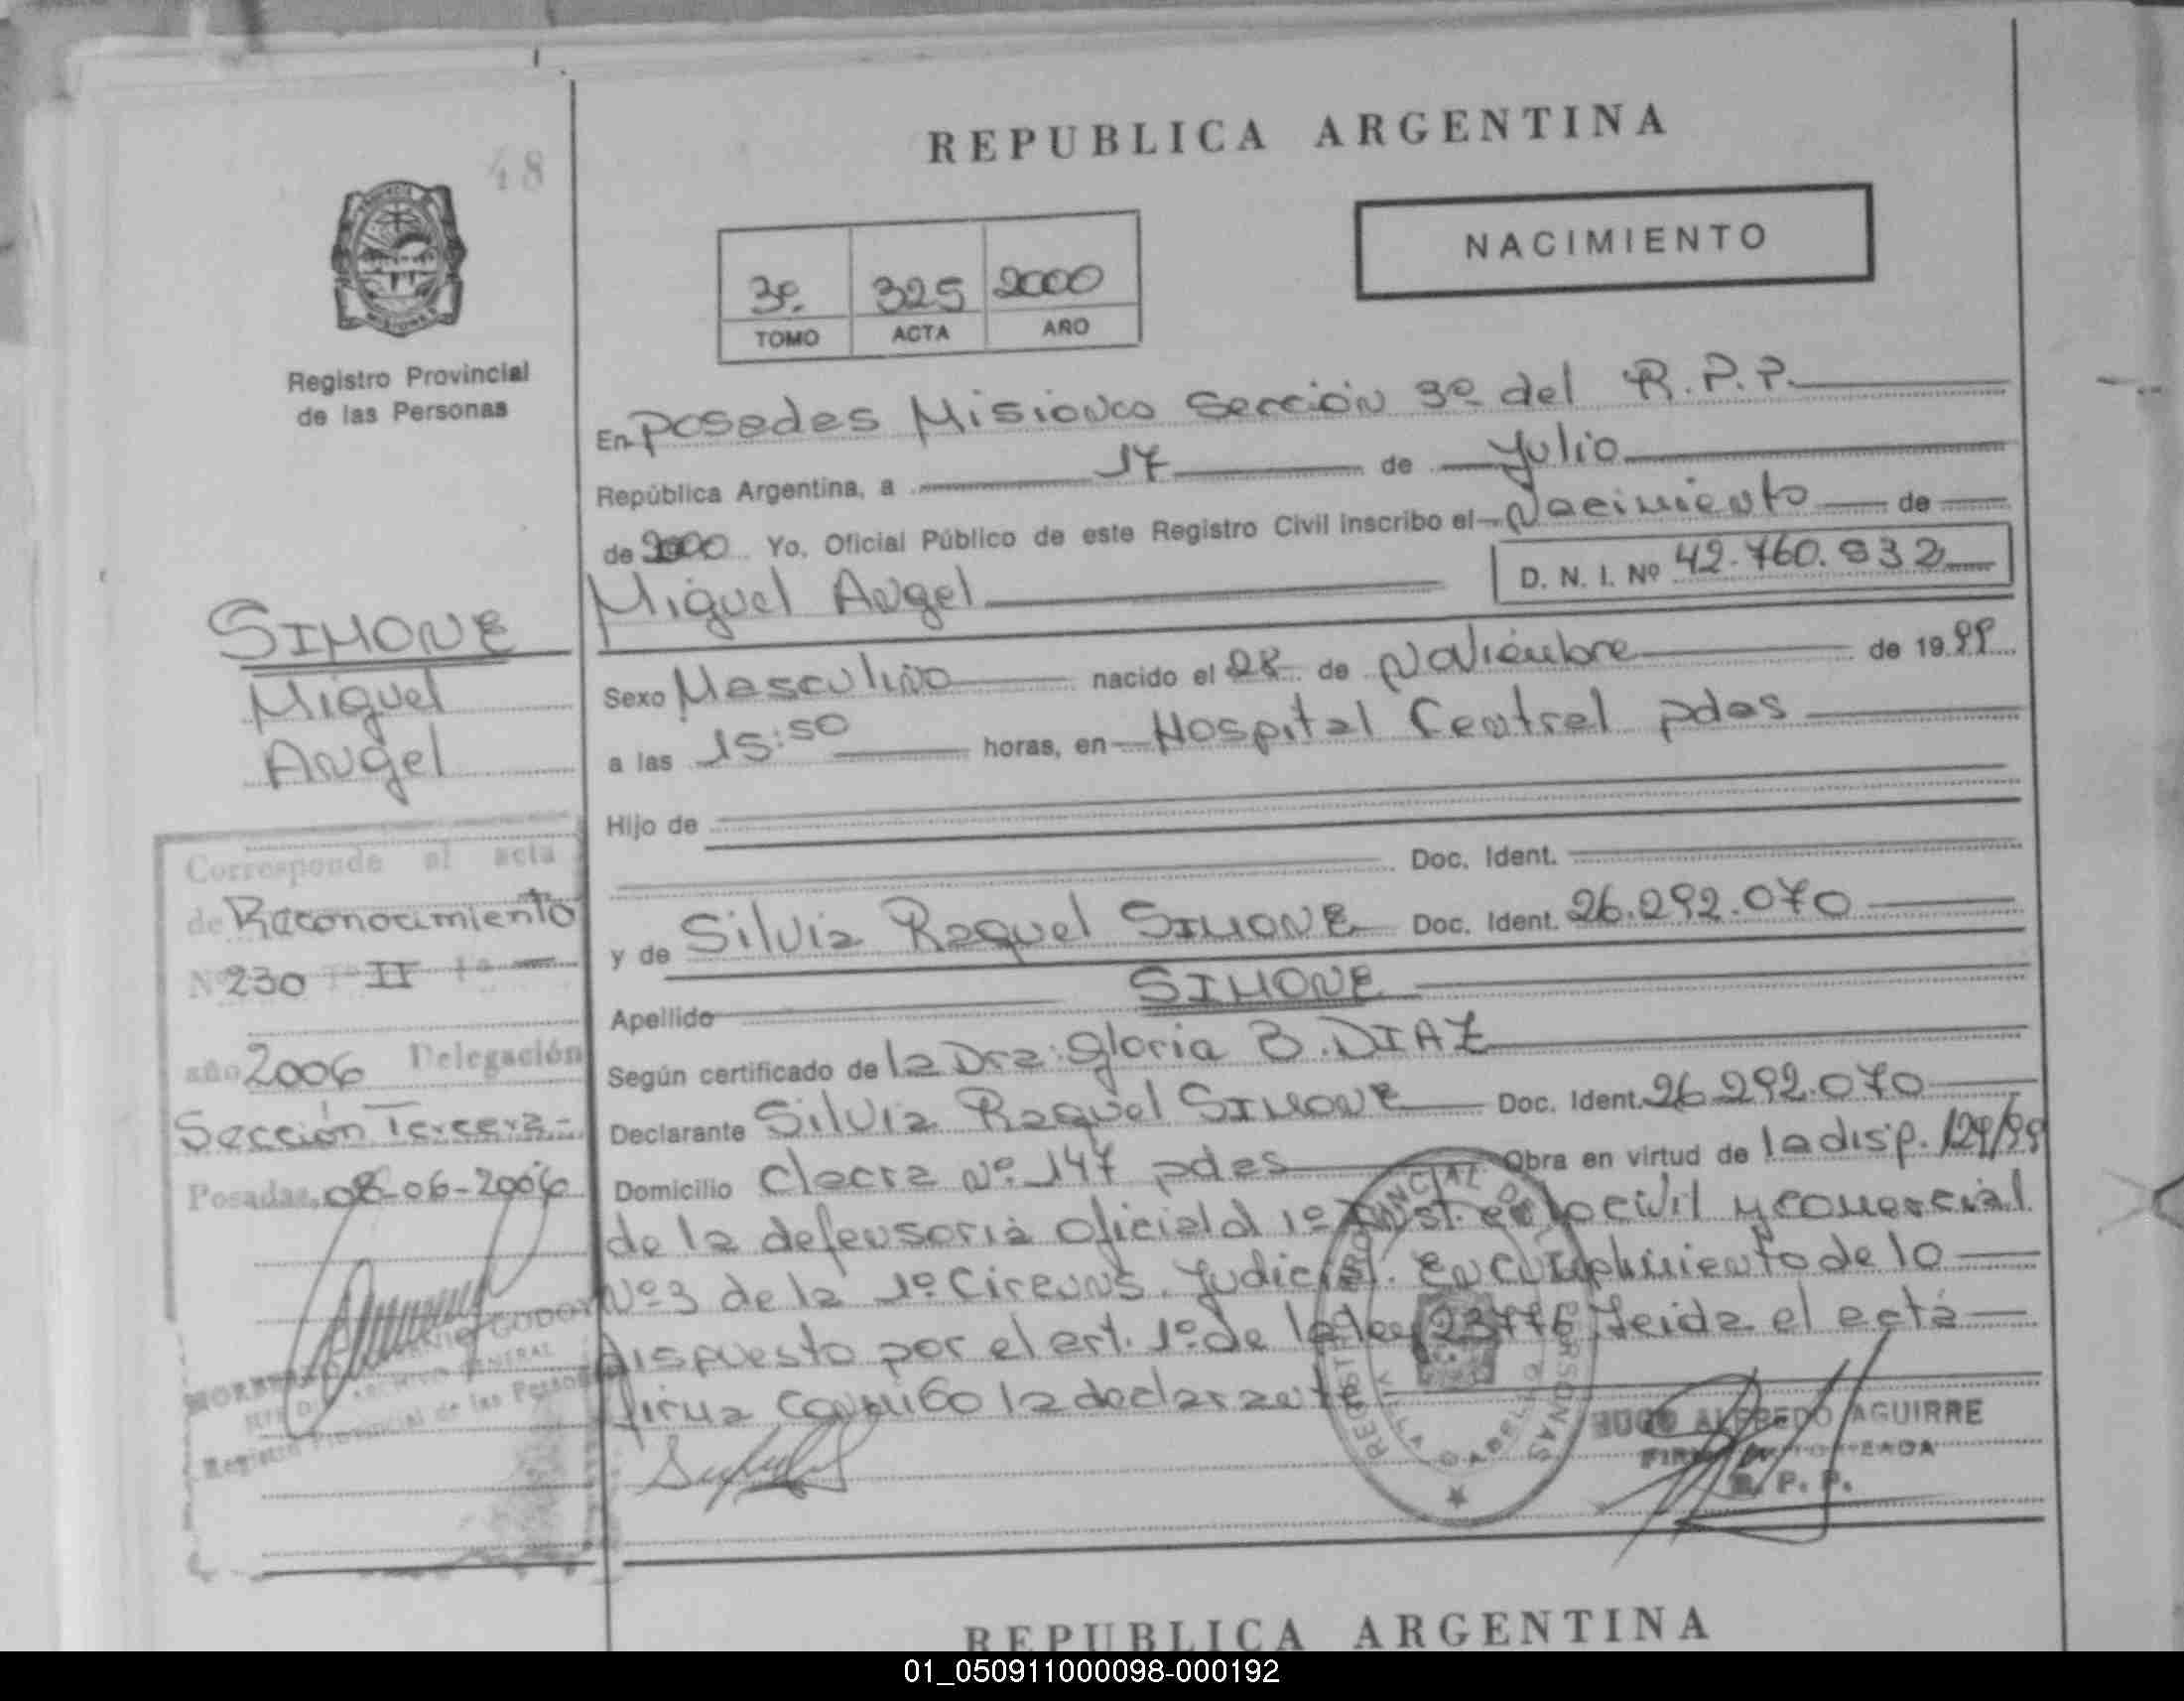 REPUBLICA ARGENTINA
48
NACIMIENTO
3º. 325 2000
TOMO ACTA AÑO
Registro Provincial
de las Personas
En Posadas Misiones Sección 3º del R.P.P.
República Argentina, a 17 de Julio
de 2000 Yo, Oficial Público de este Registro Civil inscribo el Nacimiento de
Miguel Angel D. N. I. Nº 42.760.832
SIMONE
Miguel
Angel
Sexo Masculino nacido el 28 de Noviembre de 1999
a las 15:50 horas, en Hospital Central pdas
Hijo de
Doc. Ident.
y de Silvia Raquel SIMONE Doc. Ident. 26.292.070
Apellido SIMONE
Según certificado de la Dra: Gloria B. DIAZ
Declarante Silvia Raquel SIMONE Doc. Ident. 26.292.070
Domicilio Chacra Nº 147 pdas Obra en virtud de la disp. 129/99
de la defensoria oficial d 1º Inst. en lo civil y comercial
Nº 3 de la 1º Circuns. Judicial. En cumplimiento de lo
dispuesto por el art. 1º de la ley 23776, leida el acta
firma conmigo la declarante
Corresponde al acta
de Reconocimiento
Nº 230 Tº II Fº
año 2006 Delegación
Sección Tercera
Posadas, 08-06-2006
GODOY
ARCHIVO GENERAL
Registro Provincial de las Personas
REGISTRO PROVINCIAL DE PERSONAS
HUGO ALFREDO AGUIRRE
FIRMA AUTORIZADA
R. P. P.
REPUBLICA ARGENTINA
01_050911000098-000192